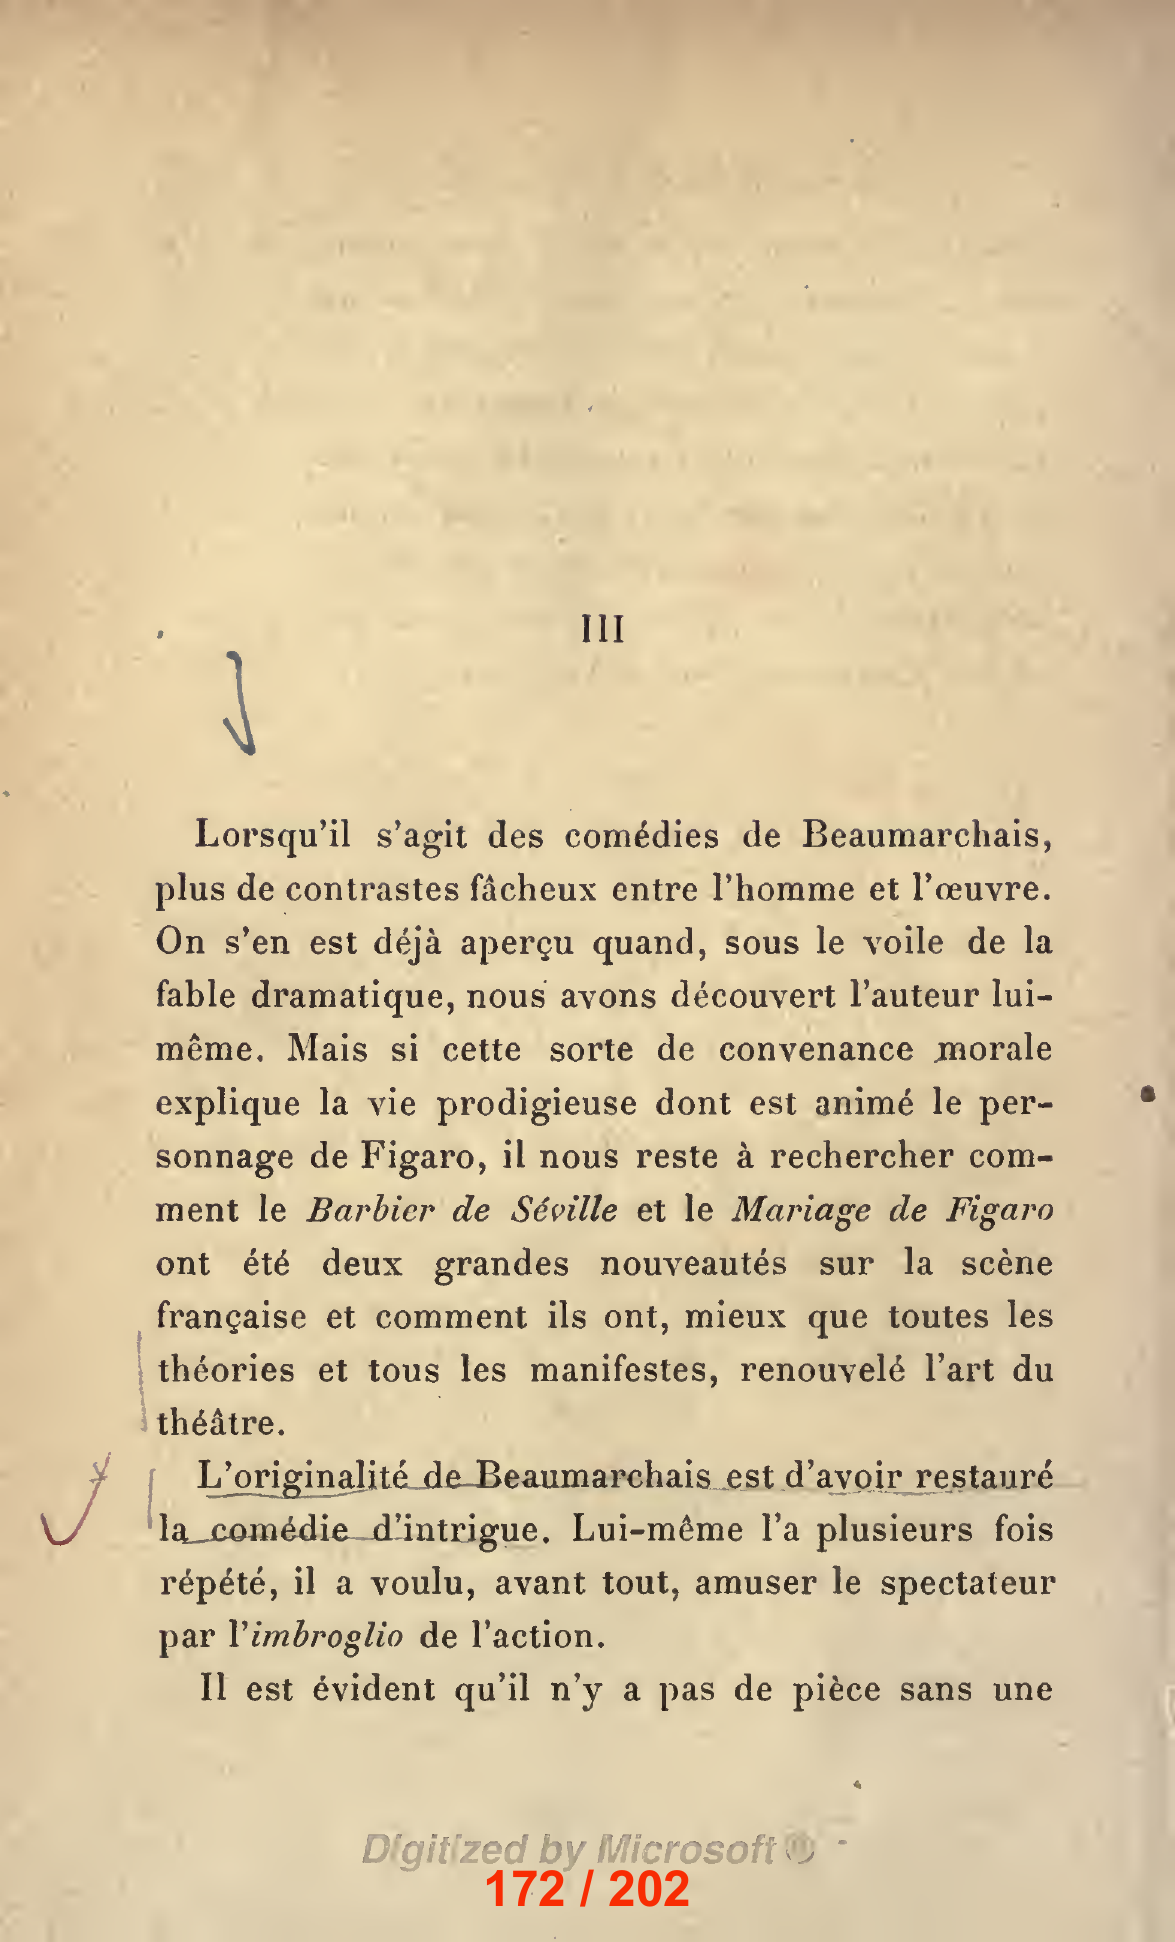 III
Lorsqu'il s'agit des comédies de Beaumarchais,
plus de contrastes fâcheux entre l'homme et l'œuvre.
On s'en est déjà aperçu quand, sous le voile de la
fable dramatique, nous avons découvert l'auteur lui-
même. Mais si cette sorte de convenance morale
explique la vie prodigieuse dont est animé le per-
sonnage de Figaro, il nous reste à rechercher com-
ment le Barbier de Séville et le Mariage de Figaro
ont été deux grandes nouveautés sur la scène
française et comment ils ont, mieux que toutes les
théories et tous les manifestes, renouvelé l'art du
théâtre.
L'originalité de Beaumarchais est d'avoir restauré
la comédie d'intrigue. Lui-même l'a plusieurs fois
répété, il a voulu, avant tout, amuser le spectateur
par l'imbroglio de l'action.
Il est évident qu'il n'y a pas de pièce sans une
Digitized by Microsoft ®
172 / 202